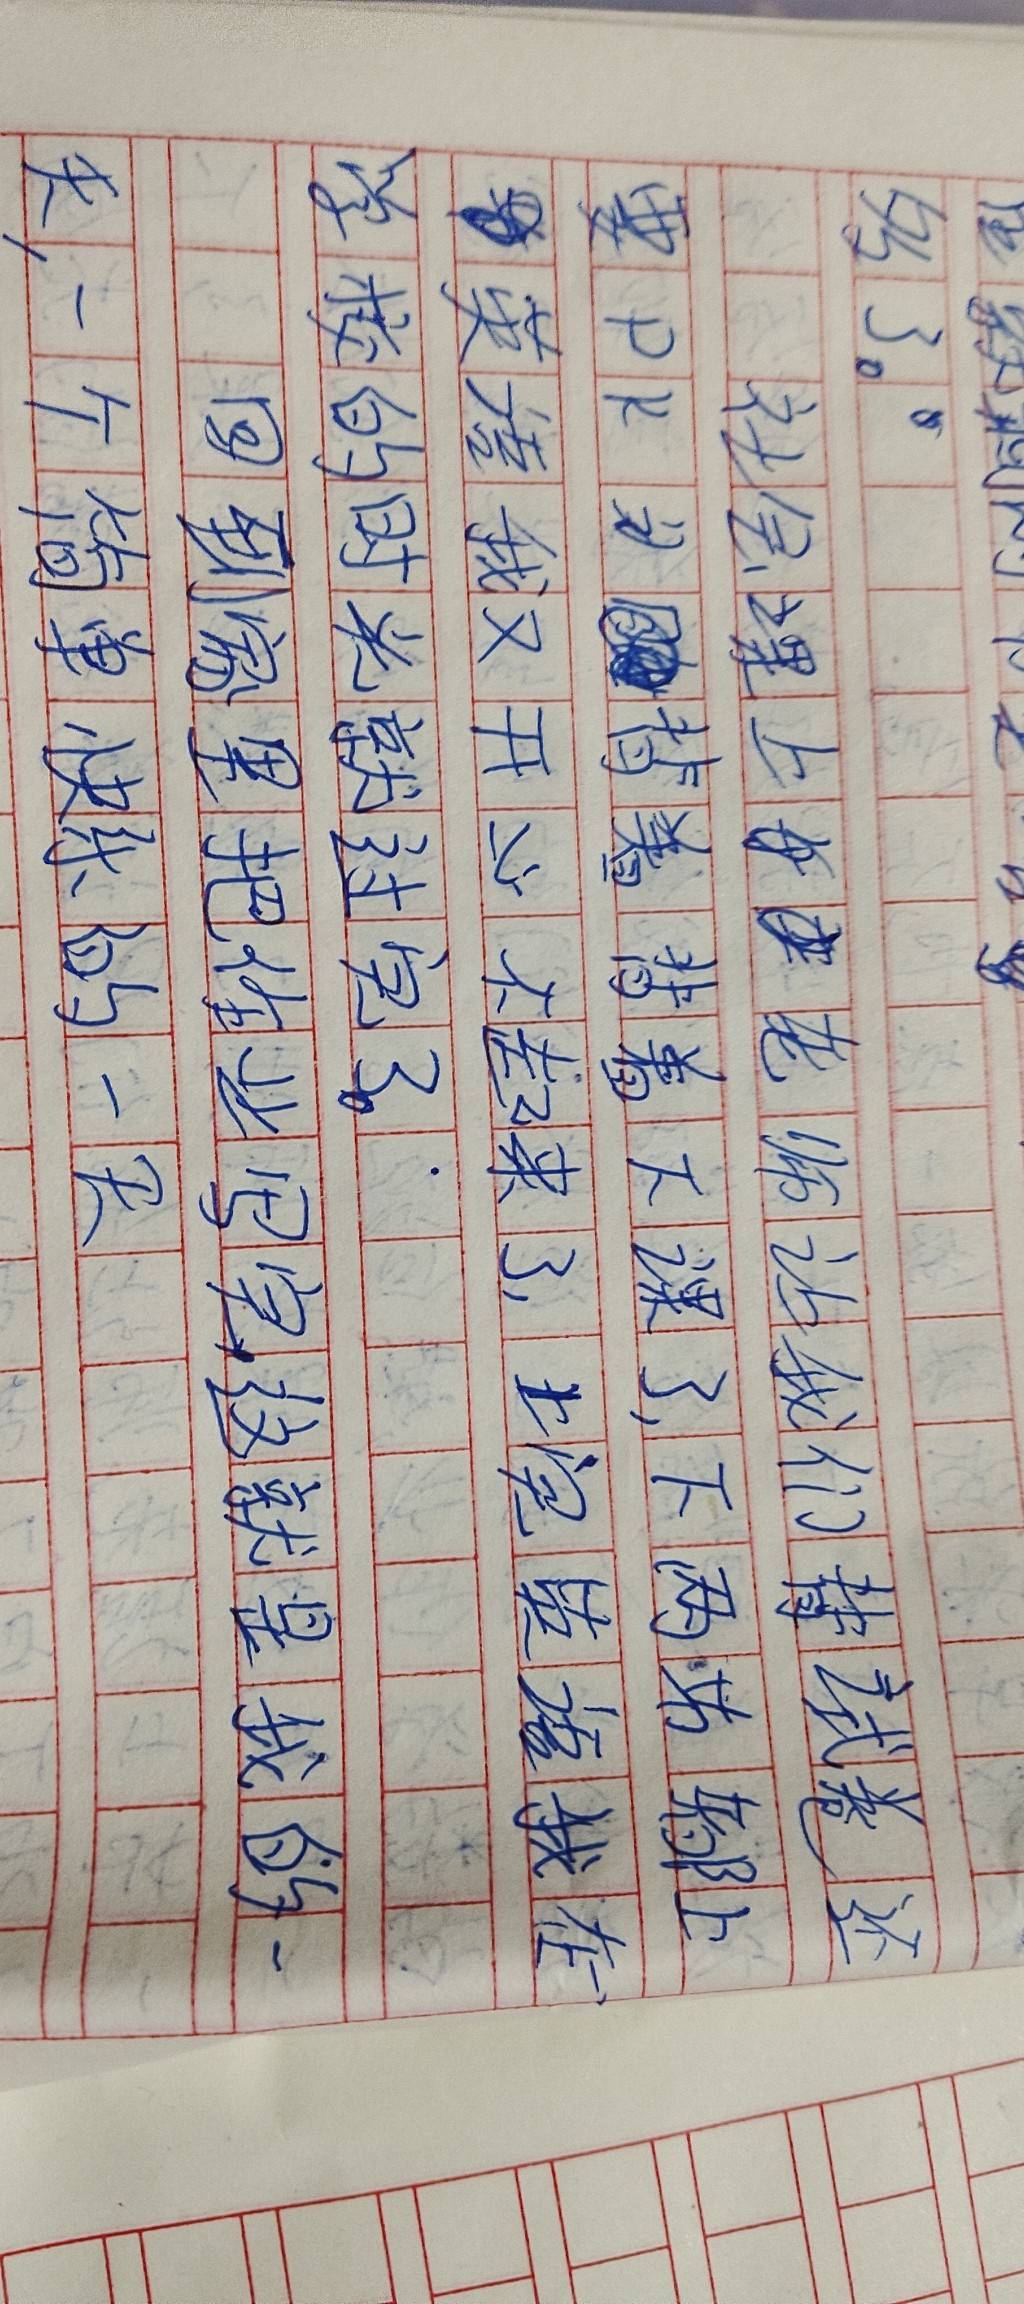 了。”
社会课上老师让我们背试卷还
要PK 背着背着下课了,下两节都上
英语我又开心不起来了,上完英语我在
学校的时光就过完了。
回到家里把作业写完,这就是我的一
天,一个简单快乐的一天